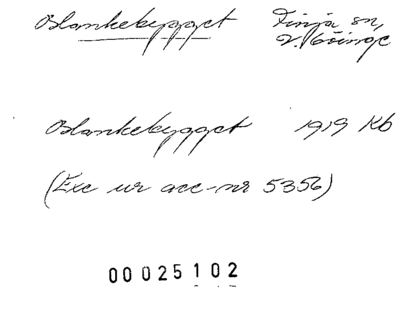 Blankebygget Finja sn,
V. Göinge
Blankebygget 1919 Kb
(Exc ur acc-nr 5356)
00025102